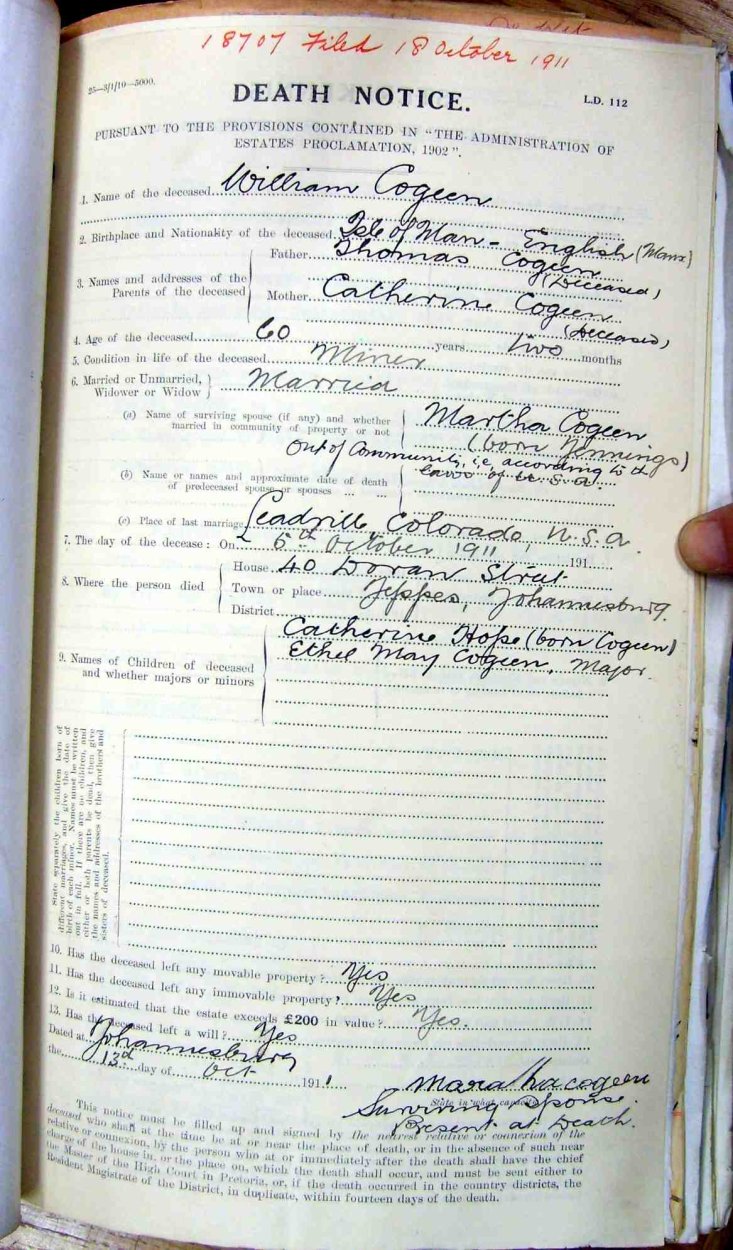 18707 Filed 18 October 1911
25—3/1/10—5000.
L.D. 112
DEATH NOTICE.
PURSUANT TO THE PROVISIONS CONTAINED IN "THE ADMINISTRATION OF
ESTATES PROCLAMATION, 1902".
1. Name of the deceased William Cogeen
2. Birthplace and Nationality of the deceased. Isle of Man - English (Manx)
3. Names and addresses of the Parents of the deceased
Father Thomas Cogeen
(Deceased)
Mother Catherine Cogeen
(deceased)
4. Age of the deceased 60 years two months
5. Condition in life of the deceased Miner
6. Married or Unmarried, Widower or Widow Married
(a) Name of surviving spouse (if any) and whether
married in community of property or not
Martha Cogeen
(born Jennings)
Out of Community, i.e. according to the
laws of U.S.A.
(b) Name or names and approximate date of death
of predeceased spouse or spouses ... ...
(c) Place of last marriage Leadville, Colorado, U.S.A.
7. The day of the decease: On 6th October 1911, 191
8. Where the person died
House 40 Doran Street
Town or place Jeppes, Johannesburg.
District
9. Names of Children of deceased
and whether majors or minors
Catherine Hope (born Cogeen)
Ethel May Cogeen, Major.
State separately the children born of
different marriages, and give the date of
birth of each minor. Names must be written
out in full. If there are no children, and
either or both parents be dead, then give
the names and addresses of the brothers and
sisters of deceased.
10. Has the deceased left any movable property? Yes
11. Has the deceased left any immovable property? Yes
12. Is it estimated that the estate exceeds £200 in value? Yes.
13. Has the deceased left a will? Yes
Dated at Johannesburg
the 13th day of Oct 1911
Maratha cogeen
State in what capacity.
Surviving Spouse.
Present at Death.
This notice must be filled up and signed by the nearest relative or connexion of the
deceased who shall at the time be at or near the place of death, or in the absence of such near
relative or connexion, by the person who at or immediately after the death shall have the chief
charge of the house in, or the place on, which the death shall occur, and must be sent either to
the Master of the High Court in Pretoria, or, if the death occurred in the country districts, the
Resident Magistrate of the District, in duplicate, within fourteen days of the death.